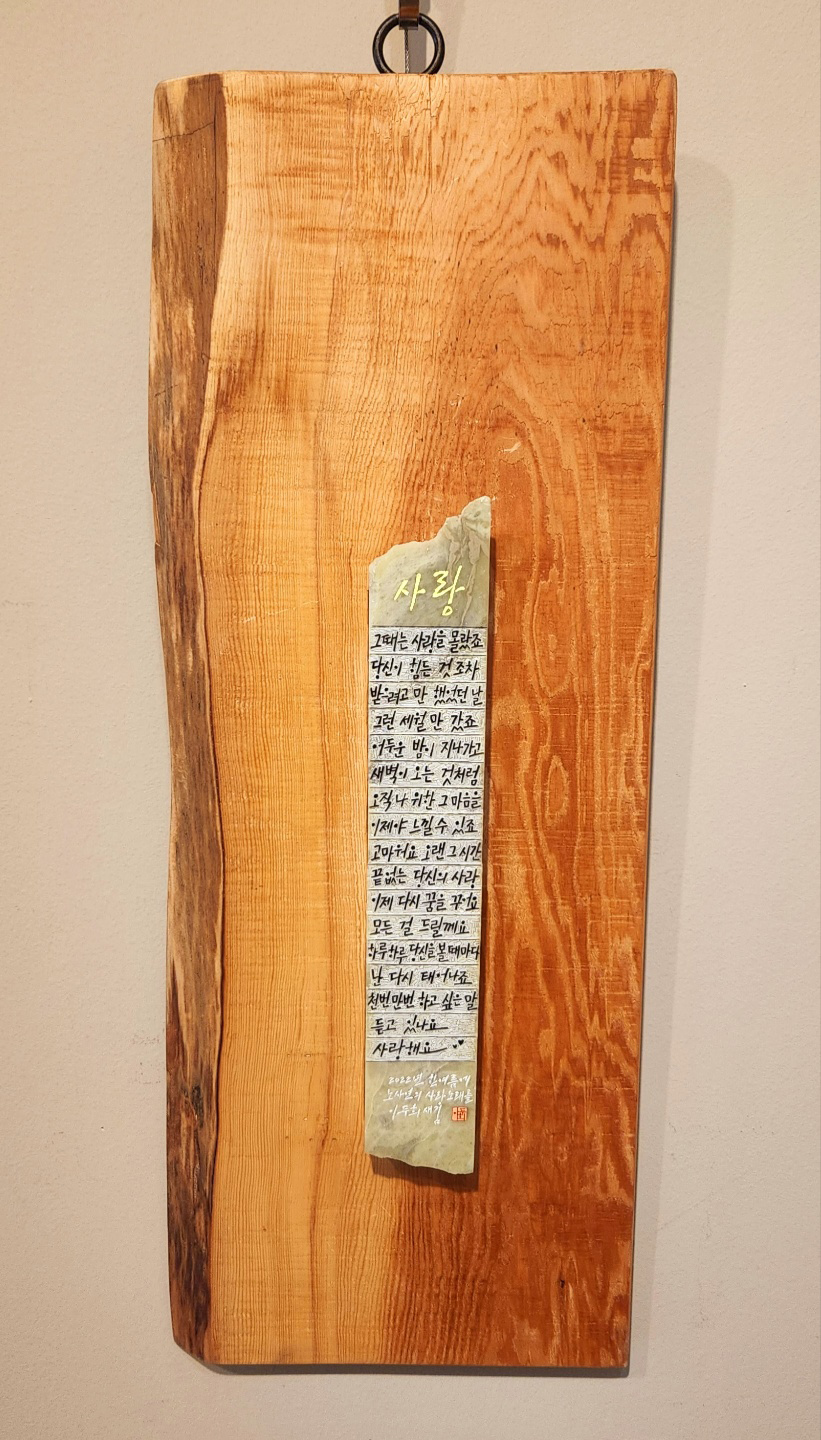 사랑
그때는 사랑을 몰랐죠
당신이 힘든 것조차
받으려고만 했었던 날
그런 세월만 갔죠
어두운 밤이 지나가고
새벽이 오는 것처럼
오직 나 위한 그 마음을
이제야 느낄 수 있죠
고마워요 오랜 그 시간
끝없는 당신의 사랑
이제 다시 꿈을 꾸어요
모든 걸 드릴께요
하루하루 당신을 볼 때마다
난 다시 태어나죠
천번 만번 하고 싶은 말
듣고 있나요
사랑해요
2022년 한여름에
노사연의 사랑 노래를
이두희 새김